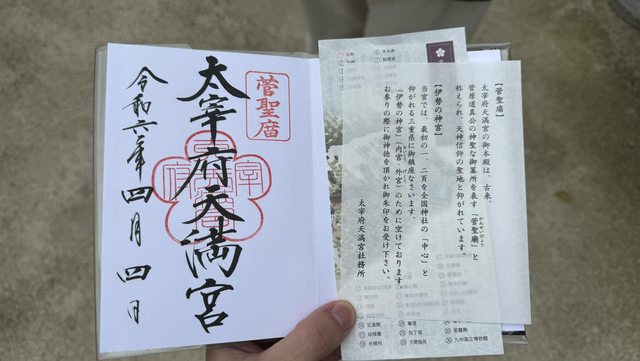 菅聖廟
太宰府天満宮
令和六年四月四日
【菅聖廟】
太宰府天満宮の御本殿は、古来、
菅原道真公の神聖な御墓所を表す「菅聖廟」と
かんせいびょう
称えられ、天神信仰の聖地と仰がれています。
【伊勢の神宮】
当宮では、最初の一、二頁を全国神社の「中心」と
仰がれる三重県に御鎮座なさいます、
「伊勢の神宮」(内宮・外宮)のために空けております。
お参りの際に御神徳を頂かれ御朱印をお受け下さい。
太宰府天満宮社務所
定遠館
幼稚園
社務所
筆塚
包丁塚
天開稲荷
九州国立博物館